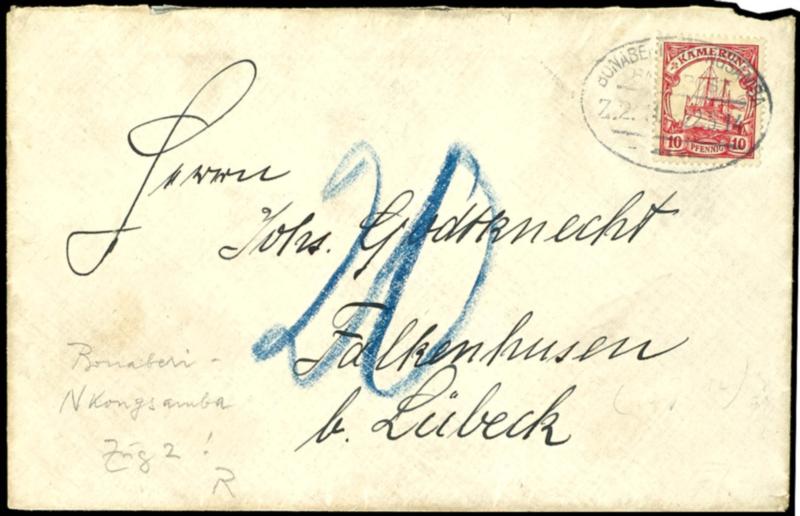 KAMERUN
10 PFENNIG 10
BONABE
Z.2.
Herrn
Johs. Godtknecht
Falkenhusen
b. Lübeck
20
Bonaberi -
NKongsamba
Zug 2 !
R